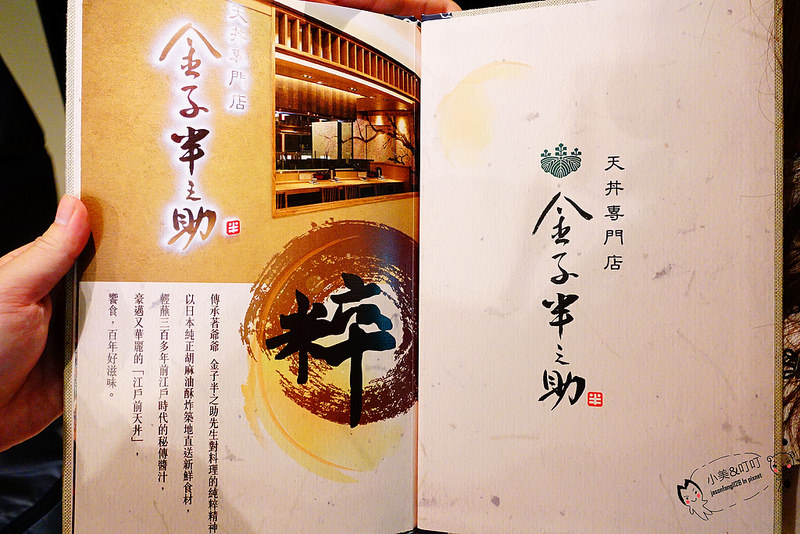 天丼專門店
金子半之助
半
粹
傳承著爺爺 金子半之助先生對料理的純粹精神
以日本純正胡麻油酥炸築地直送新鮮食材，
輕蘸三百多年前江戶時代的秘傳醬汁，
豪邁又華麗的「江戶前天丼」，
饗食，百年好滋味。
天丼專門店
金子半之助
半
小美&叮叮